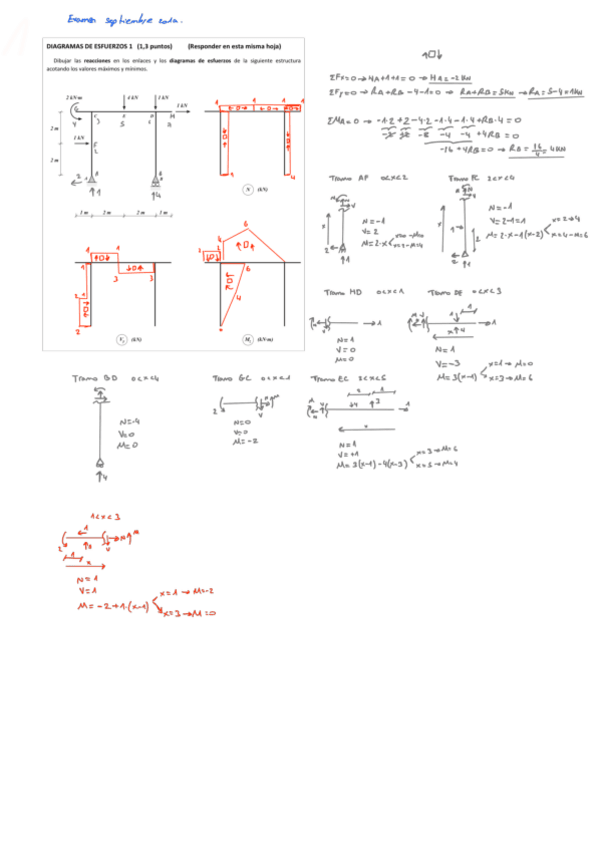 Examen septiembre
DIAGRAMAS DE ESFUERZOS 1 (1,3 puntos) (Responder en esta misma hoja)
Dibujar las reacciones en los enlaces y los diagramas de esfuerzos de la siguiente estructura
acotando los valores máximos y mínimos.
2 kN·m
4 kN
1 kN
1 kN
1 kN
2 m
2 m
1 m
2 m
2 m
1 m
N (kN)
(kN)
(kN·m)
ΣFx=0 → HA+1+1=0 → HA=-2KN
ΣFy=0 → RA+RB-4-1=0 → RA+RB=5KN → RA=5-4=1KN
ΣMA=0 → -1·2+2-4·2-1·4-1·4+RB·4=0
-2 +2 -8 -4 -4 +4RB=0
-16+4RB=0 → RB=16/4=4KN
Tramo AF 0<x<2
N=-1
V=2
M=2·x
Tramo FC 2<x<4
N=-1
V=2-1=1
M=2·x-1(x-2)
x=2→4
x=4→M=6
Tramo HD 0<x<1
N=1
V=0
M=0
Tramo DE 1<x<3
N=1
V=-3
M=3(x-1)
x=1→M=0
x=3→M=6
Tramo BD 0<x<4
N=-4
V=0
M=0
Tramo GC 0<x<1
N=0
V=0
M=-2
Tramo EC 3<x<5
N=1
V=+1
M=3(x-1)-4(x-3)
x=3→M=6
x=5→M=4
1<x<3
N=1
V=1
M=-2+1·(x-1)
x=1→M=-2
x=3→M=0